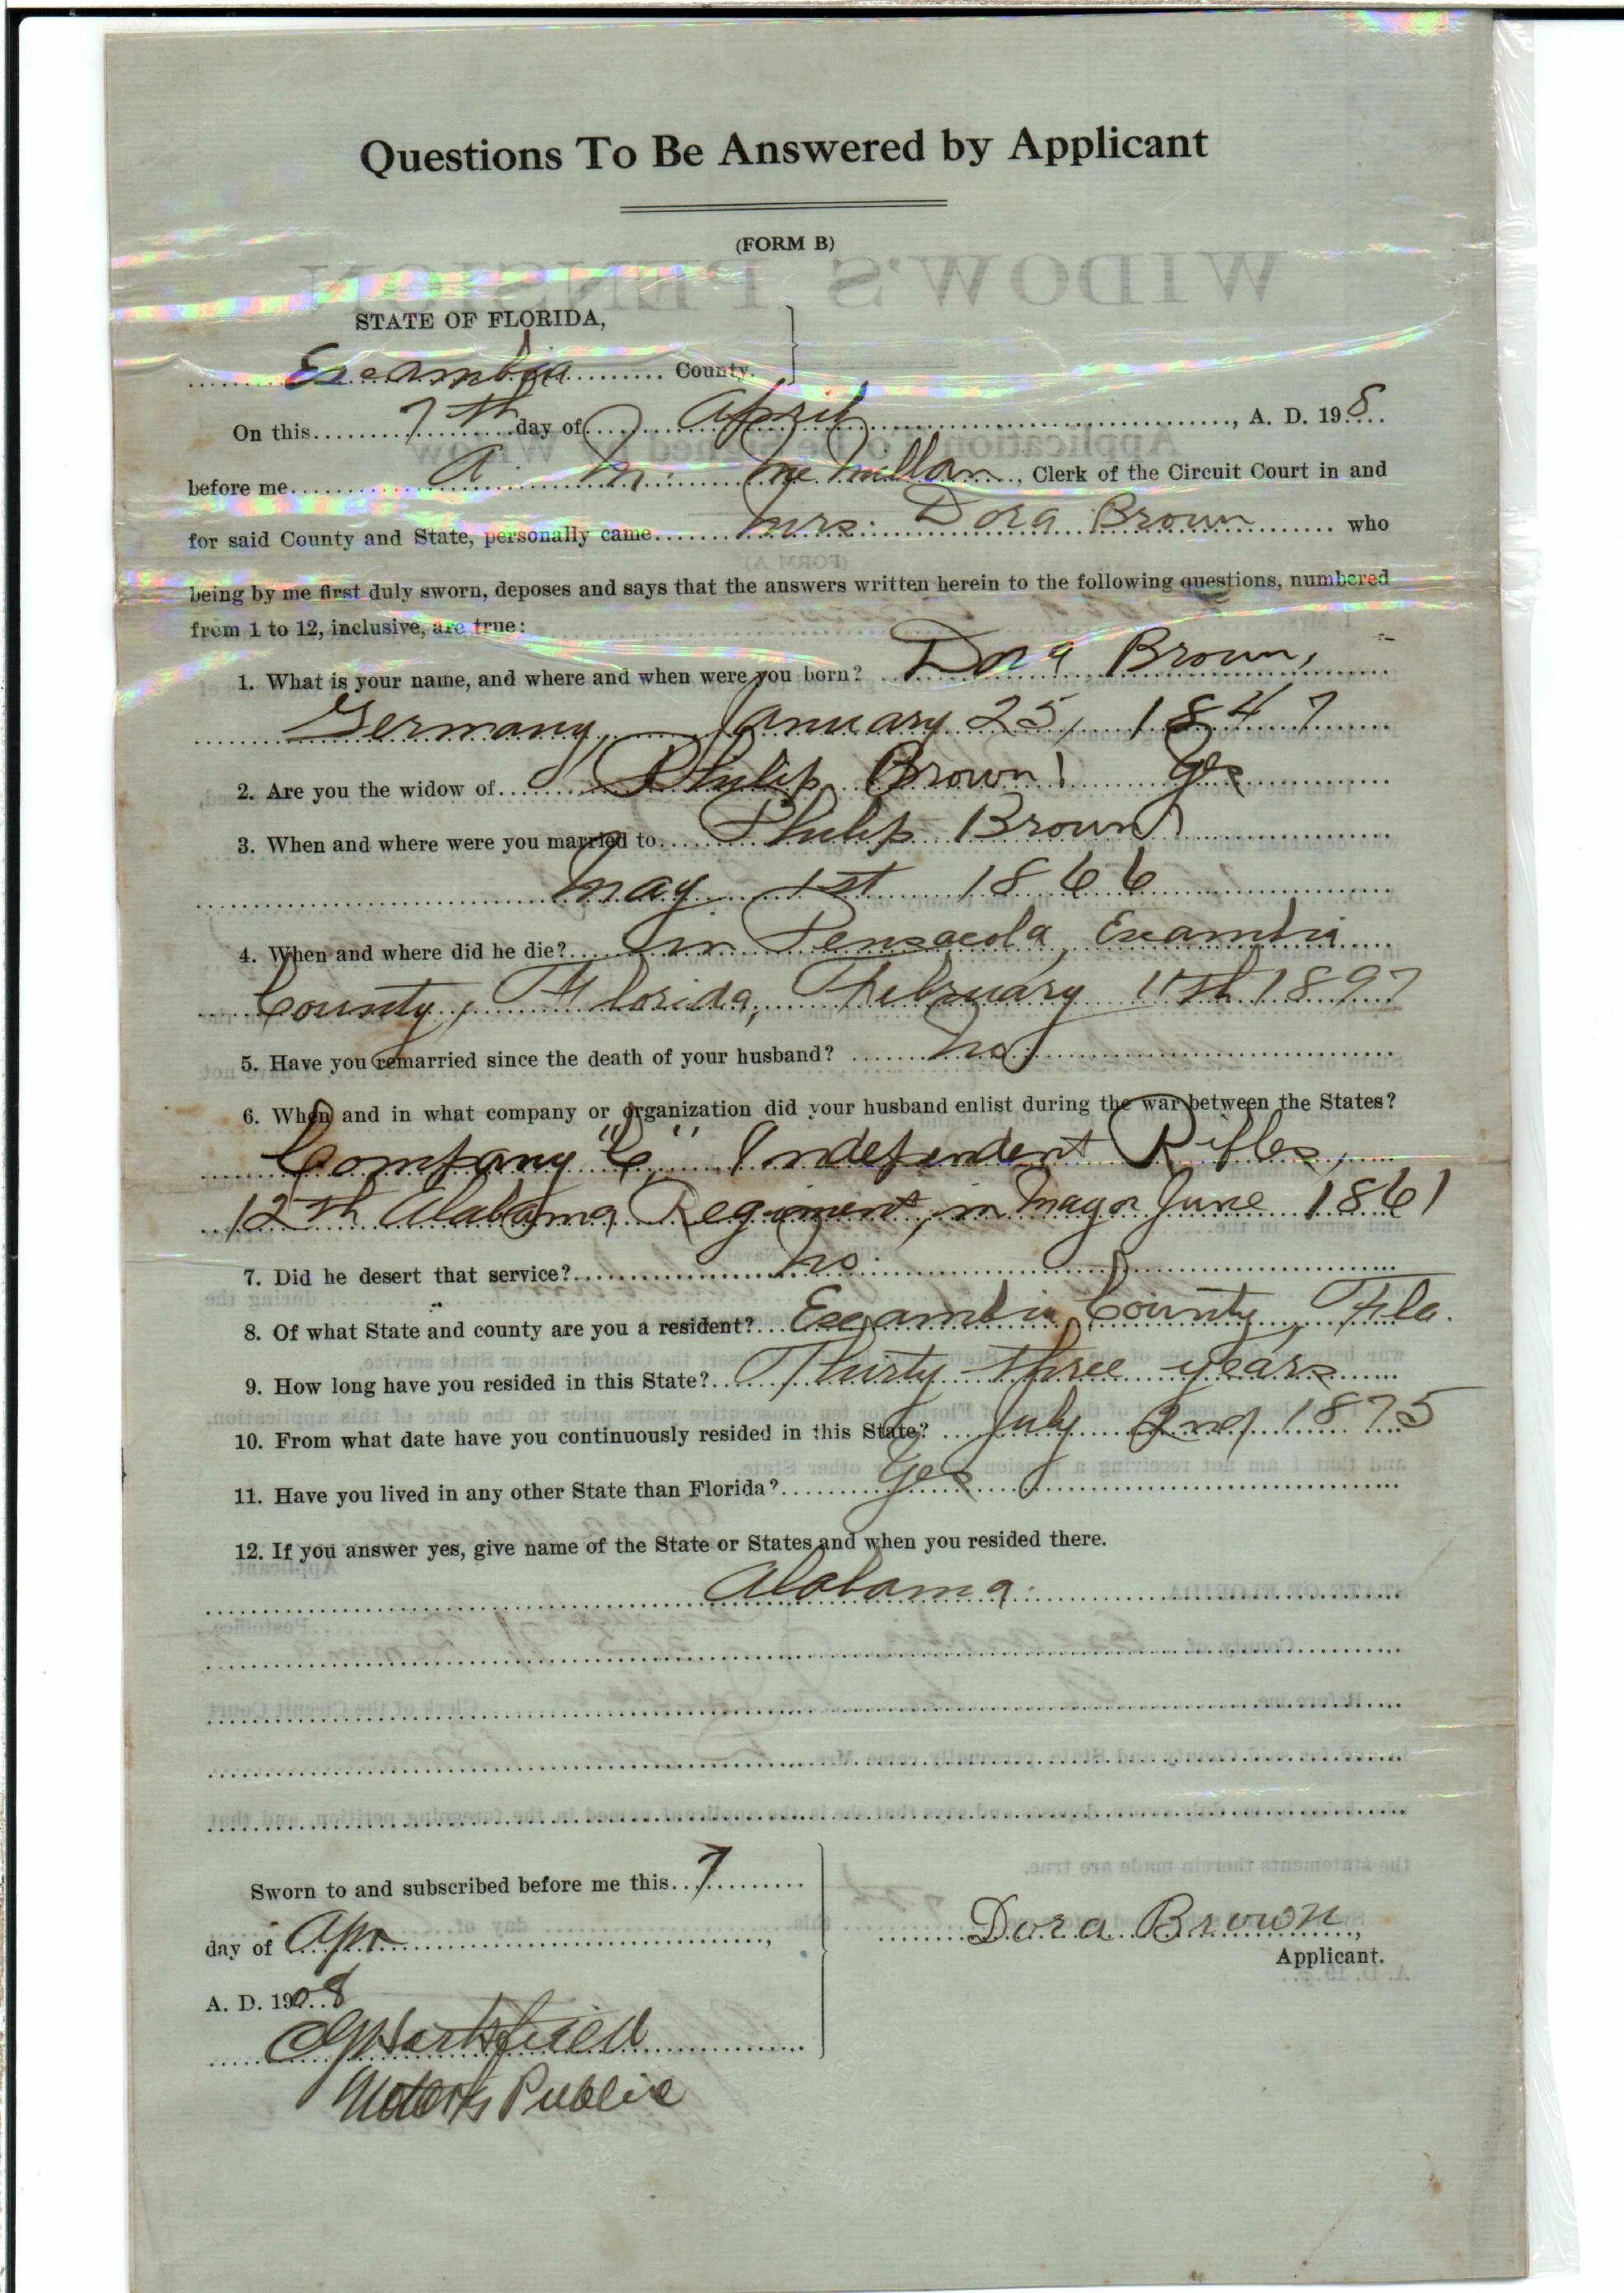 Questions To Be Answered by Applicant
(FORM B)
STATE OF FLORIDA,
Escambia County.
On this 7th day of April, A. D. 198
before me A. M. McMillan, Clerk of the Circuit Court in and
for said County and State, personally came Mrs. Dora Brown who
being by me first duly sworn, deposes and says that the answers written herein to the following questions, numbered
from 1 to 12, inclusive, are true:
1. What is your name, and where and when were you born? Dora Brown,
Germany, January 25, 1847
2. Are you the widow of Philip Brown? Yes
3. When and where were you married to Philip Brown?
May 1st 1866
4. When and where did he die? In Pensacola, Escambia
County, Florida, February 11th 1897
5. Have you remarried since the death of your husband? No
6. When and in what company or organization did your husband enlist during the war between the States?
Company "C", Independent Rifles,
12th Alabama Regiment, in May or June 1861
7. Did he desert that service? No.
8. Of what State and county are you a resident? Escambia County, Fla.
9. How long have you resided in this State? Thirty-three years
10. From what date have you continuously resided in this State? July 2nd 1875
11. Have you lived in any other State than Florida? Yes
12. If you answer yes, give name of the State or States and when you resided there.
Alabama.
Sworn to and subscribed before me this 7
day of Apr,
A. D. 1908
Hartsfield
Notary Public
Dora Brown,
Applicant.